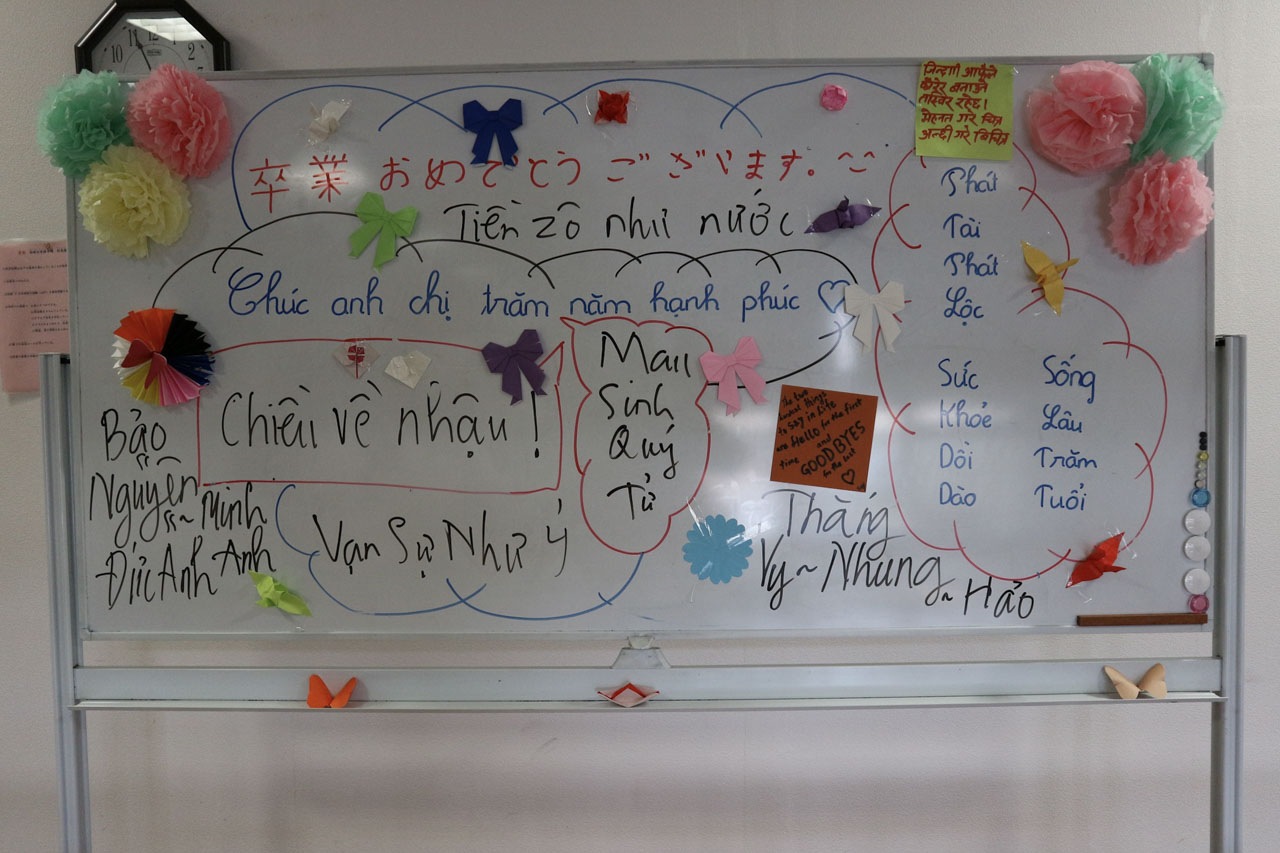 10 11 12 2
卒業おめでとうございます。
Tiền zô như nước
Chúc anh chị trăm năm hạnh phúc ♡
Chiều về nhậu !
Mau
Sinh
Quý
Tử
Vạn Sự Như Ý
Bảo
Nguyên
Minh
Đức Anh Anh
The two
hardest things
to say in life
are Hello for the first
time and
GOODBYES
for the last
Thắng
Vy ~ Nhung
~ Hảo
जिन्दगी आफूले
कोरेर बनाउने
तस्विर रहेछ।
मेहनत गरे चित्र
अल्छी गरे बिचित्र
Phát
Tài
Phát
Lộc
Sức
Khỏe
Dồi
Dào
Sống
Lâu
Trăm
Tuổi